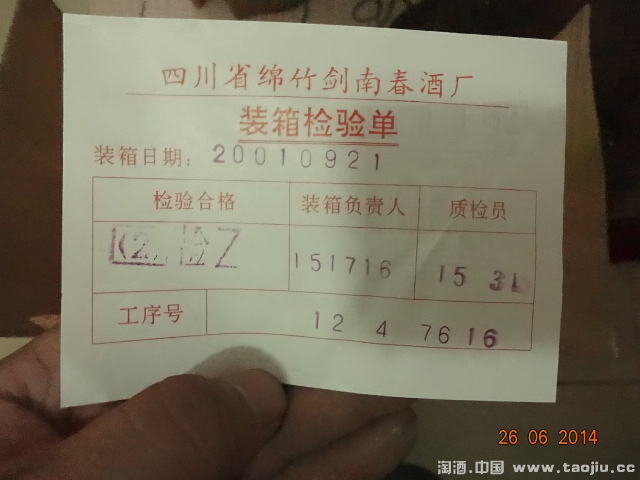 四川省绵竹剑南春酒厂
装箱检验单
装箱日期: 20010921
检验合格 装箱负责人 质检员
检 151716 15 31
工序号 12 4 76 16
26 06 2014
淘酒.中国 www.taojiu.cc